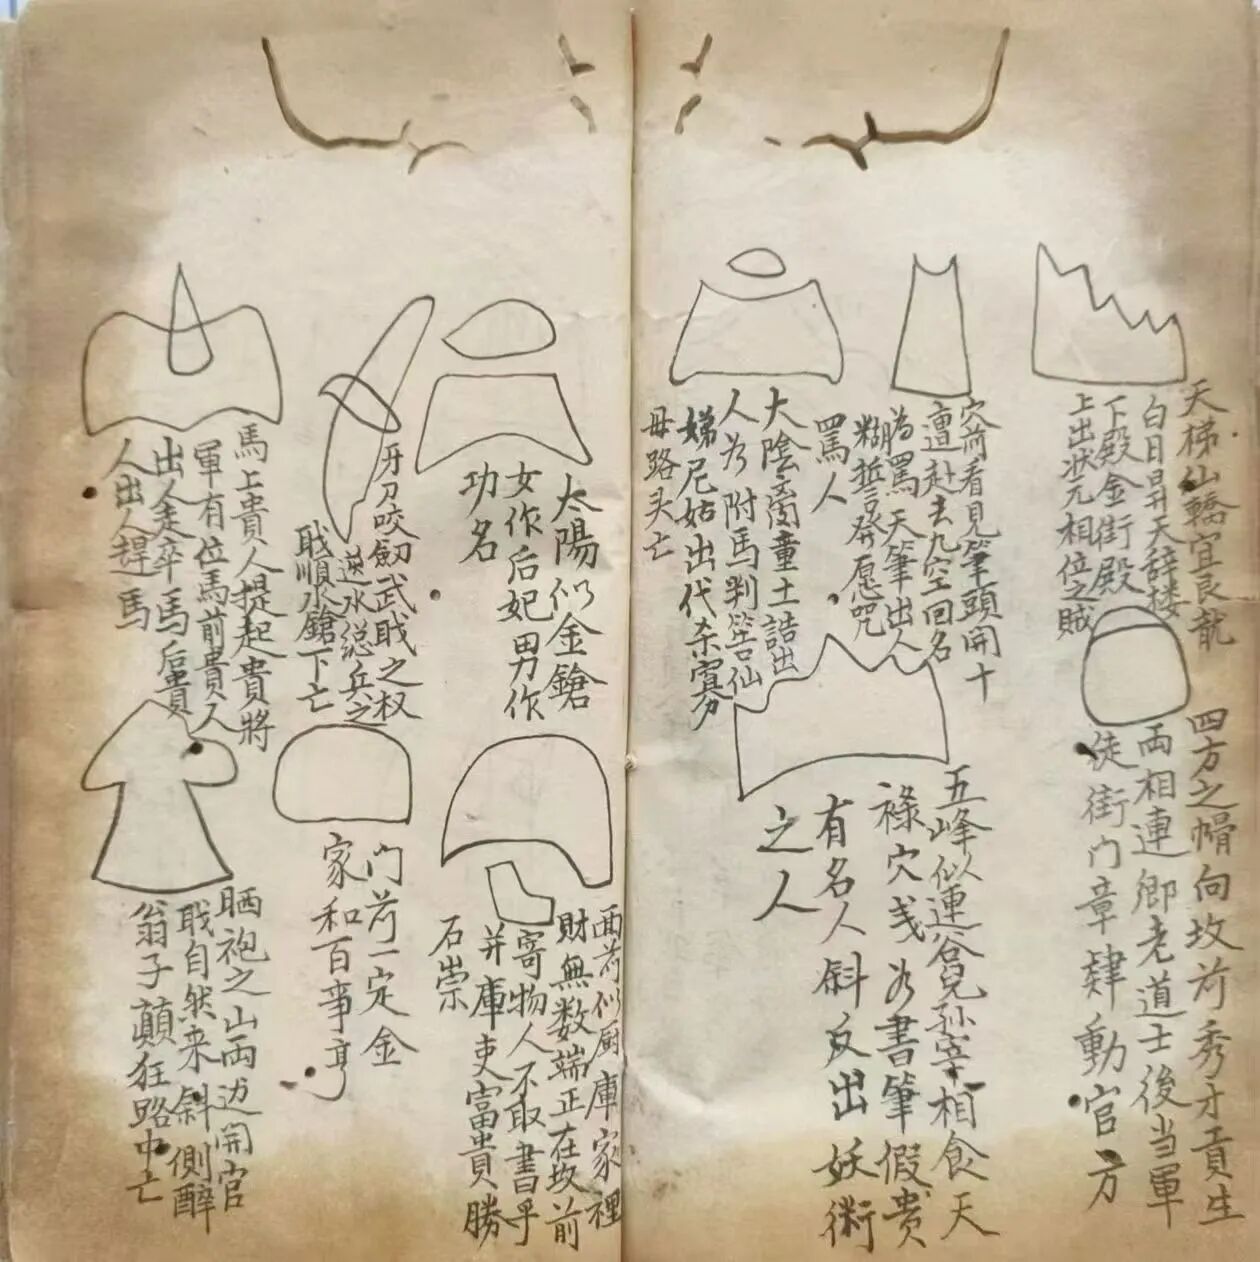 天梯山轎宜艮龍
白日昇天辞楼
下殿金街殿
上出状元相位之賊
穴前看見筆頭開十
亶赴去九空回名
為罵天筆出人
糊誓發愿咒
罵人
大陰齒童土誥出
人为附馬判筶仙
娣尼姑出代杀寡
母路头亡
四方之帽向坟前秀才貢生
両相連鄉老道士後当軍
徒街门章肆動官方
五峰似連谷兒孫宰相食天
祿穴浅为書筆假貴
有名人斜反出妖術
之人
太陽似金鎗
女作后妃男作
功名
牙刀咬劔武戝之权
逆水総兵之
戝順水鎗下亡
馬上貴人提起貴將
軍有位馬前貴人
出人走卒馬后貴
人出人趕馬
西前似厨庫家裡
財無数端正在坟前
寄物人不取書乎
并庫吏富貴勝
石崇
门前一定金
家和百事亨
晒袍之山両边開官
戝自然来斜側醉
翁子顛狂路中亡